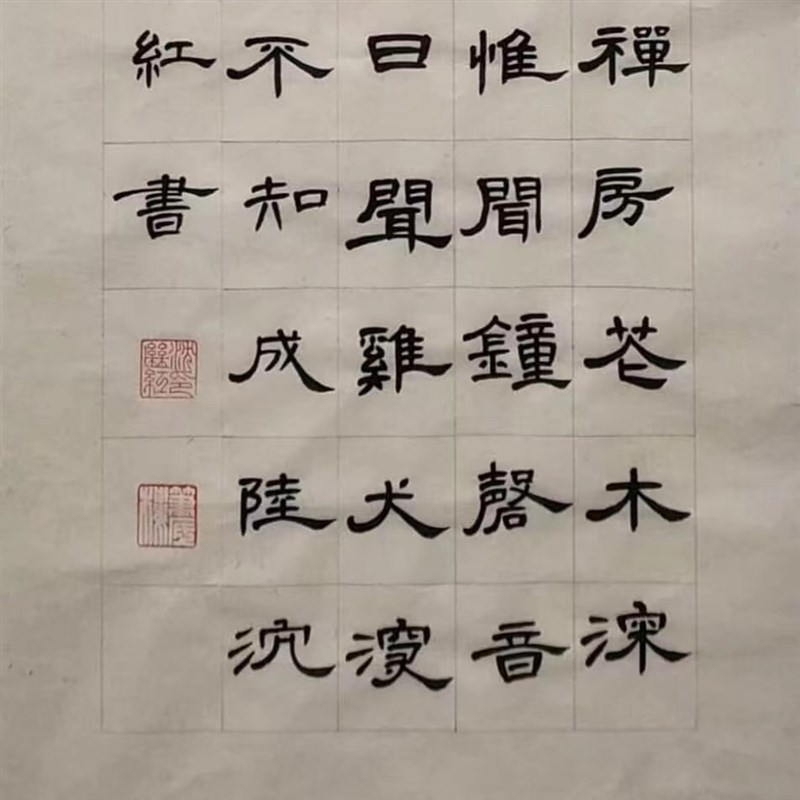 禪房花木深
惟聞鐘磬音
日聞雞犬
不知成陸沉
紅書